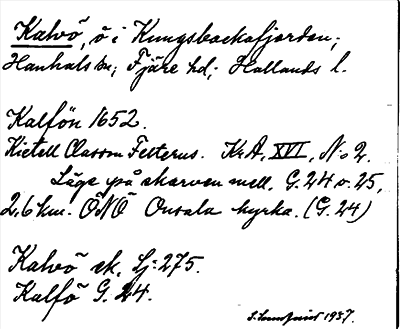 Kalvö, ö i Kungsbackafjorden;
Hanhals sn; Fjäre hd; Hallands l.
Kalfön 1652.
Kietell Classon Felterus. KrA, XVI, N:o 2.
Läge på skarven mell. G. 24 o. 25,
2,6 km. ÖNÖ Onsala kyrka. (G. 24)
Kalvö ek. Lj: 275.
Kalfö G. 24.
1937.